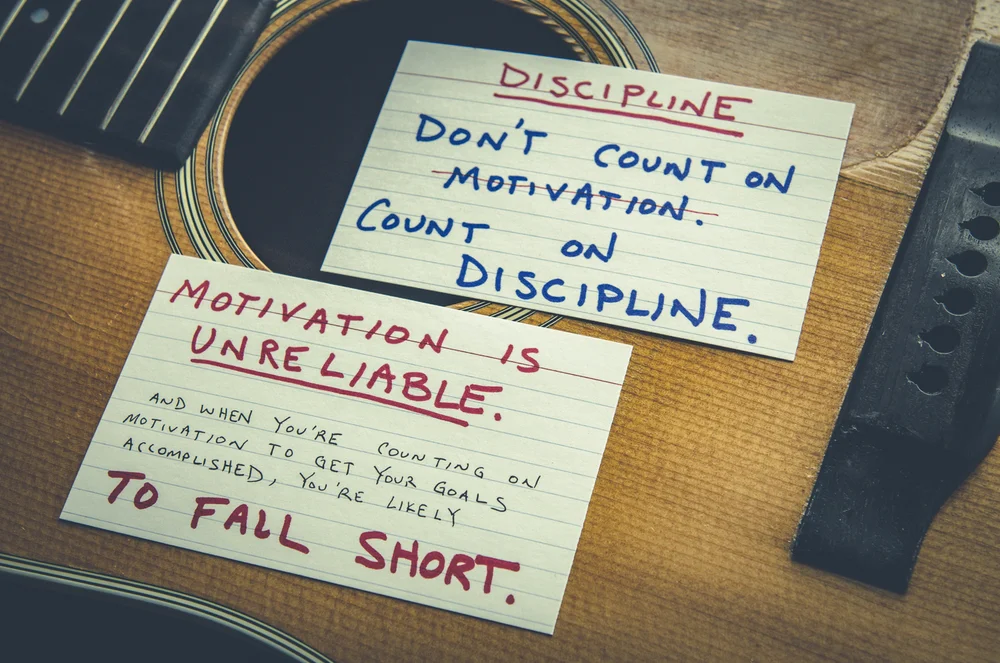 DISCIPLINE
DON'T COUNT ON
MOTIVATION.
COUNT ON
DISCIPLINE.
MOTIVATION IS
UNRELIABLE.
AND WHEN YOU'RE COUNTING ON
MOTIVATION TO GET YOUR GOALS
ACCOMPLISHED, YOU'RE LIKELY
TO FALL SHORT.